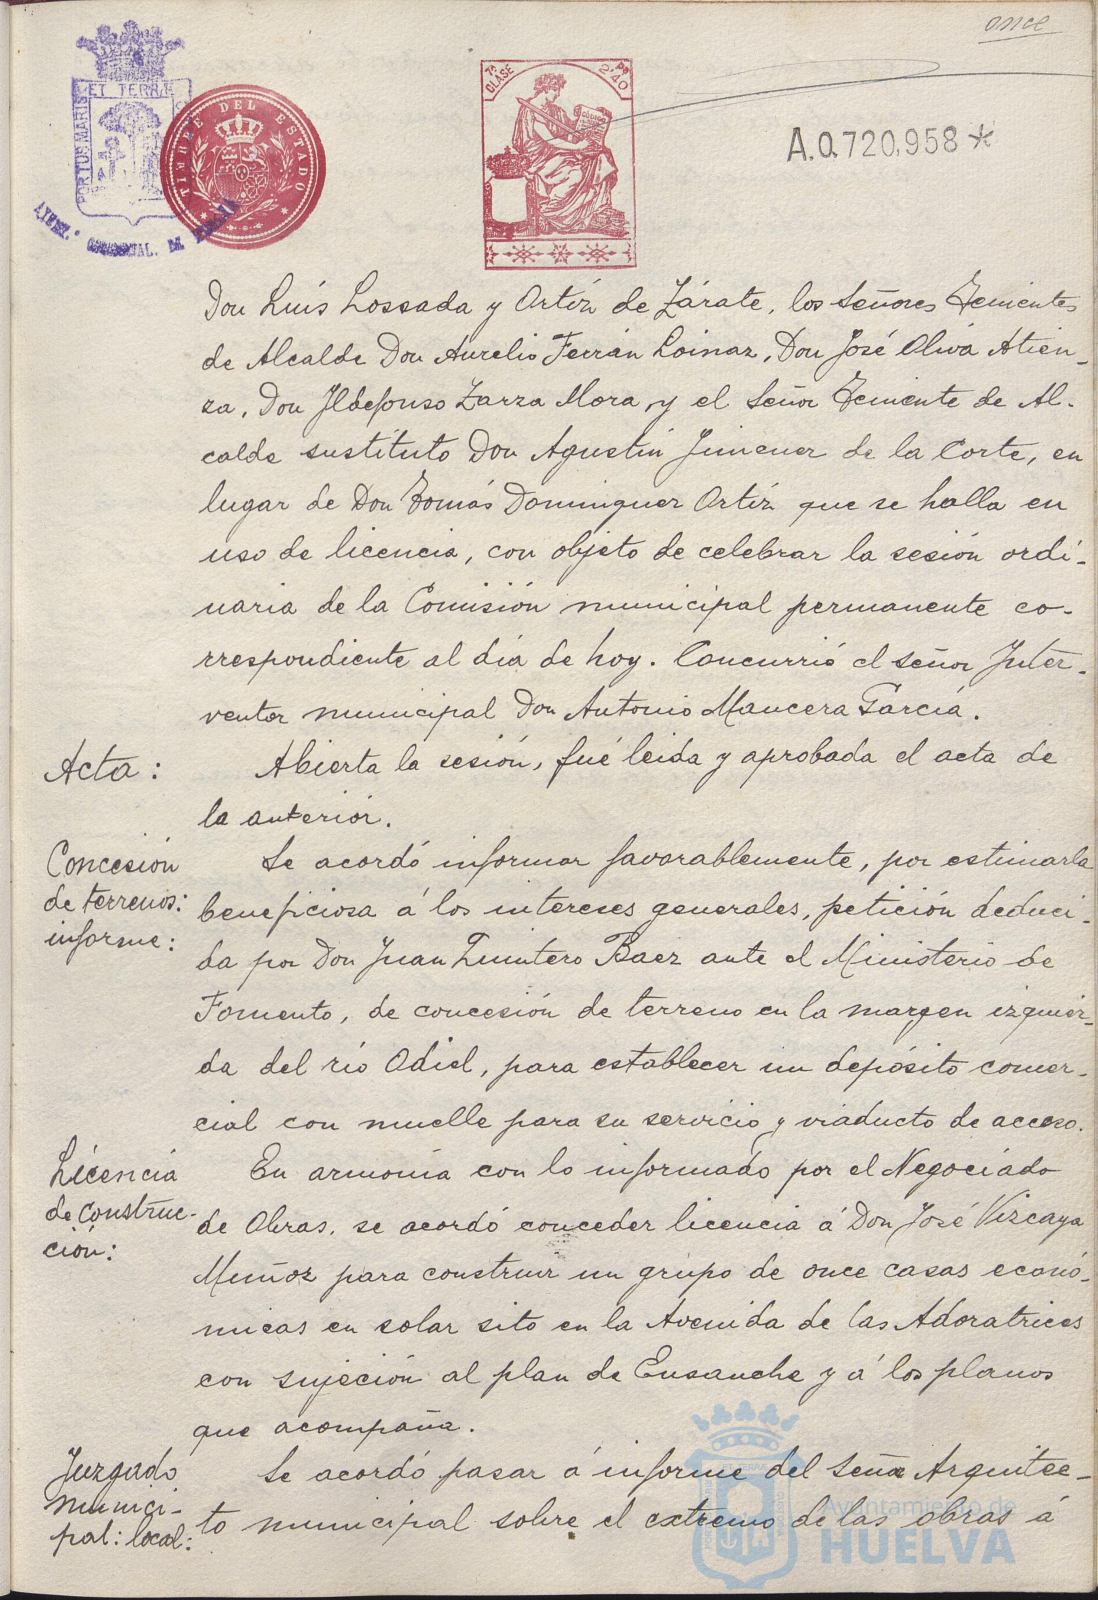 once
ET TERRÆ
PORTUS MARIS
TIMBRE DEL ESTADO
7ª CLASE
2'40
A.0.720,958*
Don Luis Lossada y Ortíz de Zárate, los Señores Tenientes
de Alcalde Don Aurelio Ferrán Loinaz, Don José Oliva Atien-
za, Don Ildefonso Zarza Mora, y el Señor Teniente de Al-
calde sustituto Don Agustín Jimenez de la Corte, en
lugar de Don Tomás Dominguez Ortíz que se halla en
uso de licencia, con objeto de celebrar la sesión ordi-
naria de la Comisión municipal permanente co-
rrespondiente al día de hoy. Concurrió el señor Inter-
ventor municipal Don Antonio Mancera García.
Acta:
Abierta la sesión, fué leida y aprobada el acta de
la anterior.
Concesión
de terrenos:
informe:
Se acordó informar favorablemente, por estimarla
beneficiosa á los intereses generales, petición deduci-
da por Don Juan Quintero Baez ante el Ministerio de
Fomento, de concesión de terreno en la margen izquier-
da del río Odiel, para establecer un depósito comer-
cial con muelle para su servicio y viaducto de acceso.
Licencia
de construc-
ción:
En armonía con lo informado por el Negociado
de Obras, se acordó conceder licencia á Don José Vizcaya
Muñoz para construir un grupo de once casas econó-
micas en solar sito en la Avenida de las Adoratrices
con sujeción al plan de Ensanche y á los planos
que acompaña.
Juzgado
munici-
pal: local:
Se acordó pasar á informe del Señor Arquitec-
to municipal sobre el extremo de las obras á
Ayuntamiento de
HUELVA